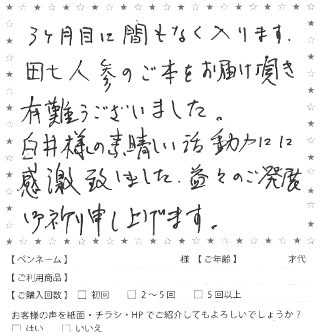 3ヶ月目に間もなく入ります.
田七人参のご本をお届け頂き
有難うございました。
白井様の素晴しい活動力に
感激致しました.益々のご発展
お祈り申し上げます。
【ペンネーム】 様 【ご年齢】 才代
【ご利用商品】
【ご購入回数】 □ 初回 □ 2～5回 □ 5回以上
お客様の声を紙面・チラシ・HPでご紹介してもよろしいでしょうか？
□ はい □ いいえ